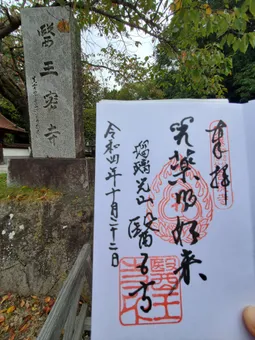 醫王密寺
奉拝
薬師如来
瑠璃光山 醫王寺
令和四年十月二十二日